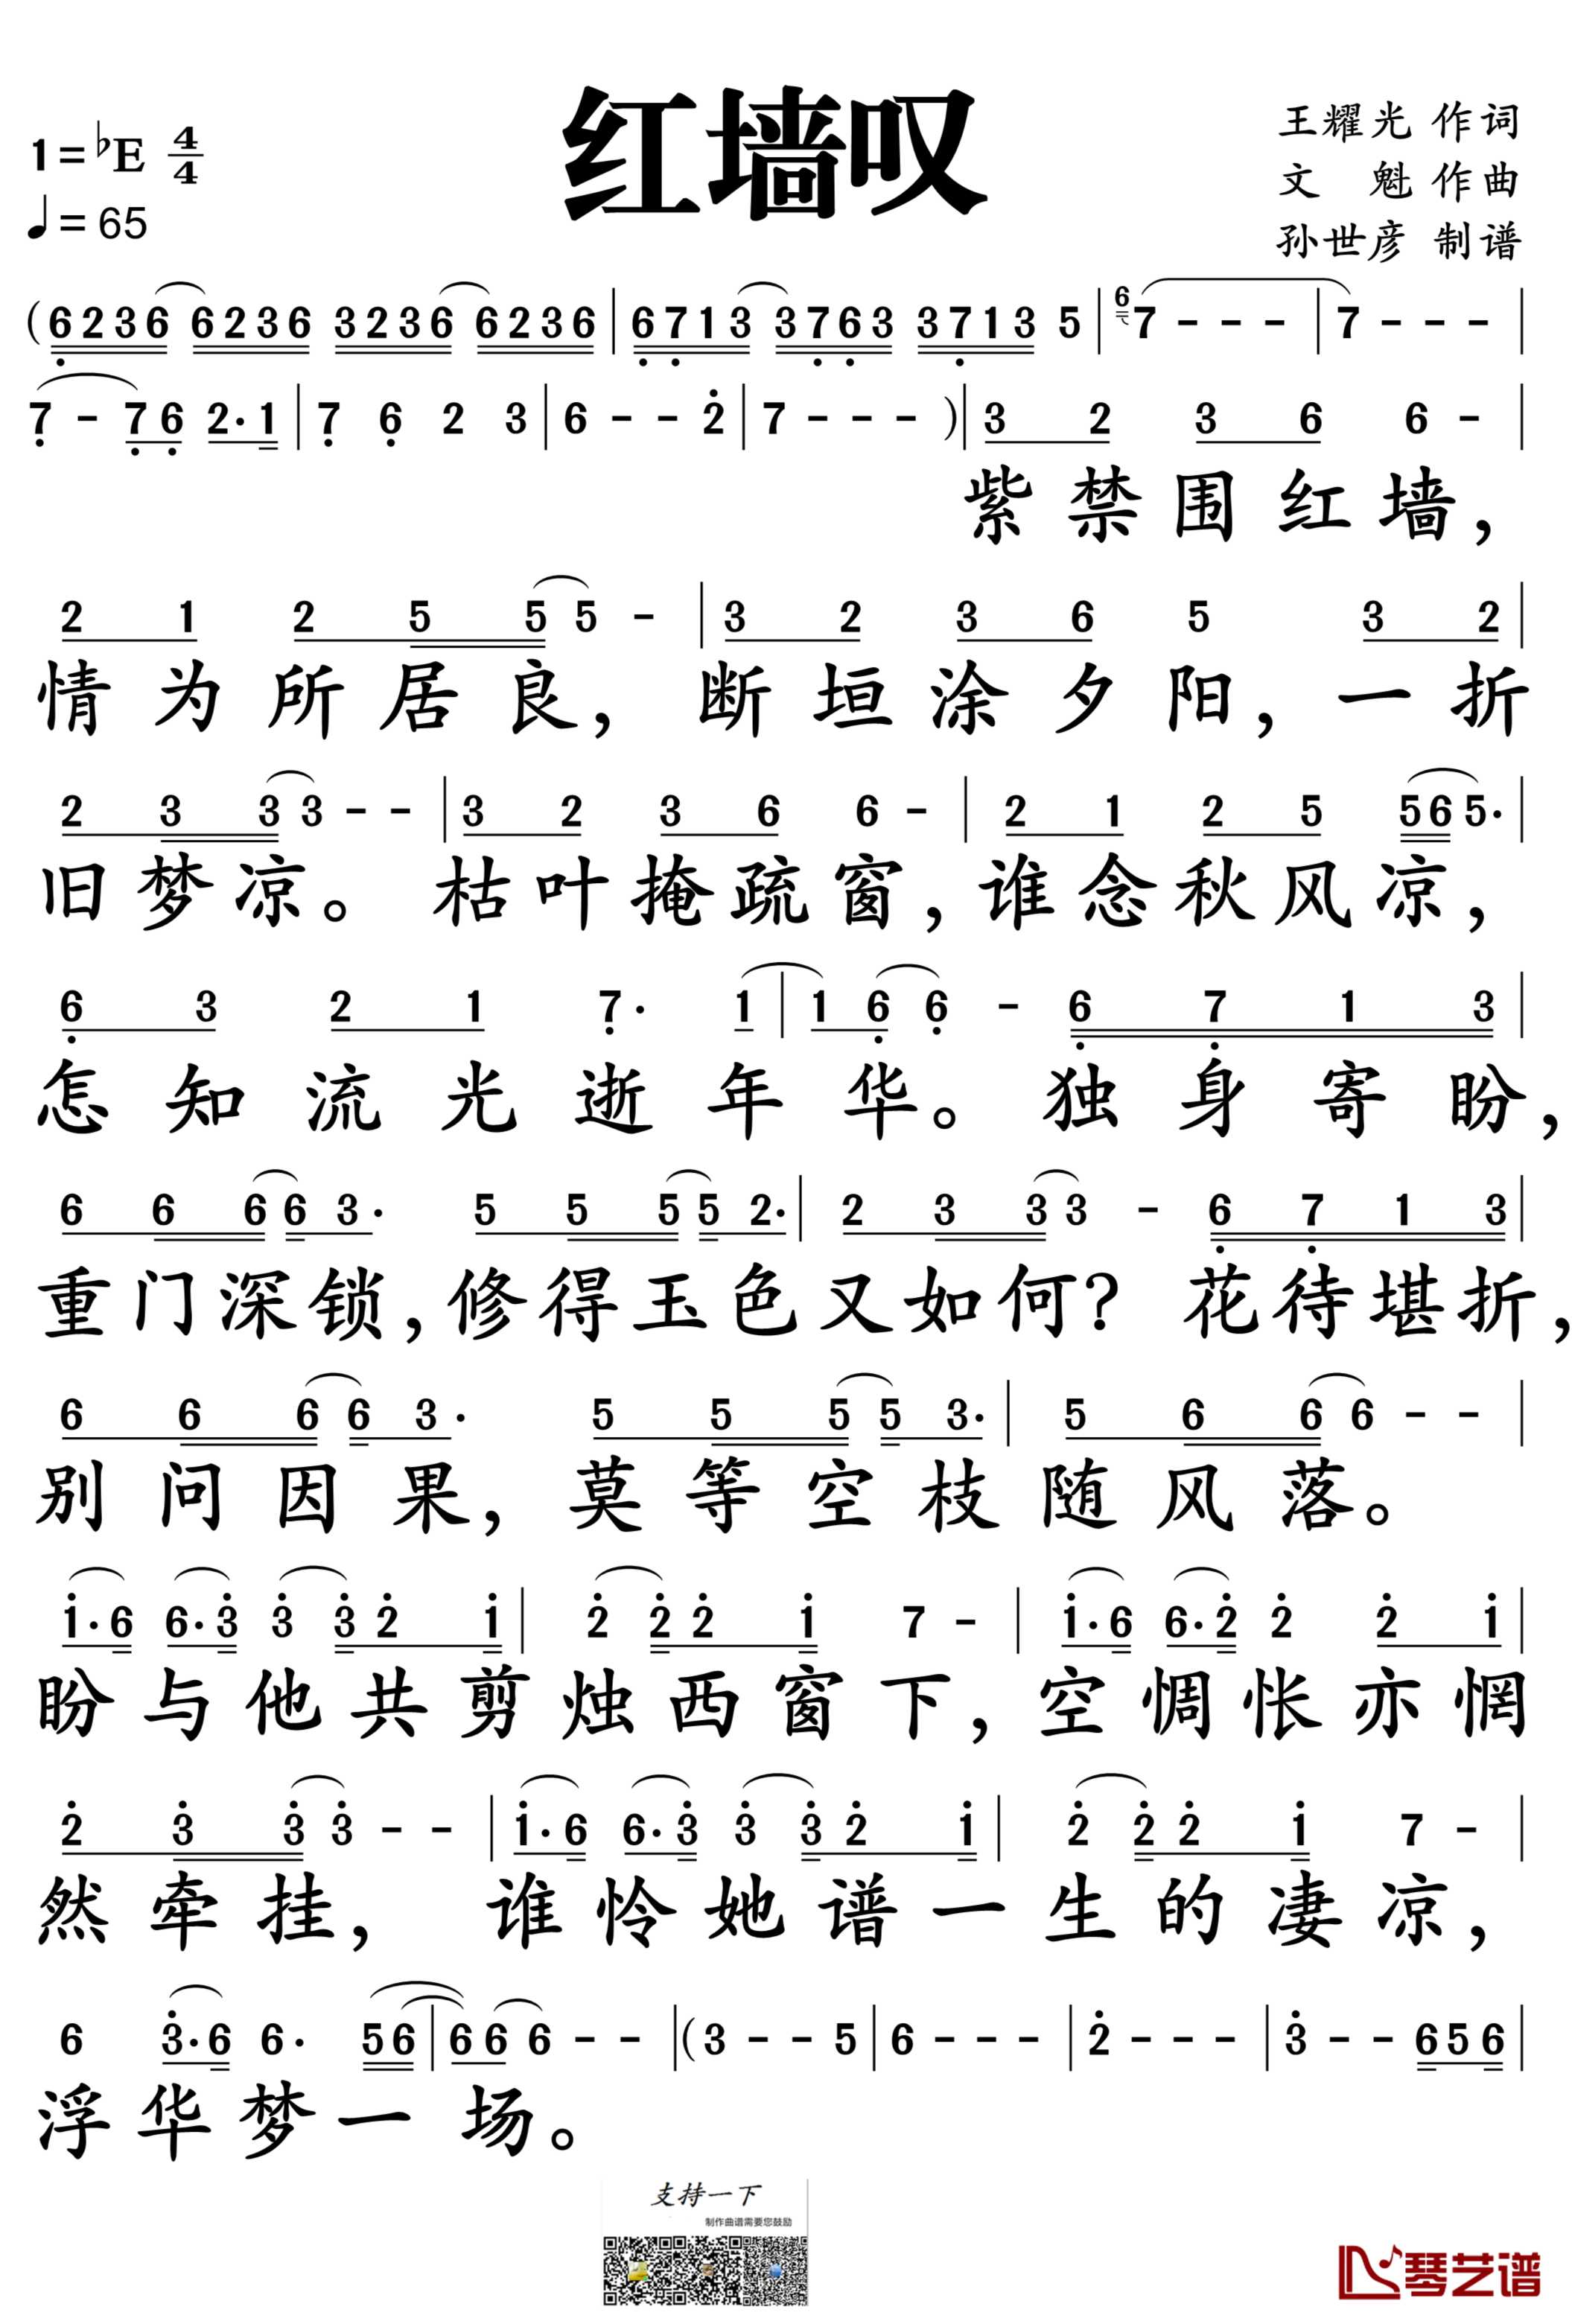 红墙叹
1=♭E 4/4
♩=65
王耀光 作词
文 魁 作曲
孙世彦 制谱
(6236 6236 3236 6236|6713 3763 3713 5|6 7 - - -|7 - - -|
7 - 76 2·1|7 6 2 3|6 - - 2|7 - - - )|3 2 3 6 6 -|
紫禁围红墙，
2 1 2 5 5 5 -|3 2 3 6 5 3 2|
情为所居良，断垣涂夕阳，一折
2 3 3 3 - -|3 2 3 6 6 -|2 1 2 5 565·|
旧梦凉。枯叶掩疏窗，谁念秋风凉，
6 3 2 1 7· 1|1 6 6 - 6 7 1 3|
怎知流光逝年华。独身寄盼，
6 6 6 6 3· 5 5 5 5 2·|2 3 3 3 - 6 7 1 3|
重门深锁，修得玉色又如何？花待堪折，
6 6 6 6 3· 5 5 5 5 3·|5 6 6 6 - -|
别问因果，莫等空枝随风落。
1·6 6·3 3 3 2 1|2 2 2 1 7 -|1·6 6·2 2 2 1|
盼与他共剪烛西窗下，空惆怅亦惘
2 3 3 3 - -|1·6 6·3 3 3 2 1|2 2 2 1 7 -|
然牵挂，谁怜她谱一生的凄凉，
6 3·6 6· 56|66 6 - -|(3 - - 5|6 - - -|2 - - -|3 - - 656|
浮华梦一场。
支持一下
制作曲谱需要您鼓励
琴艺谱